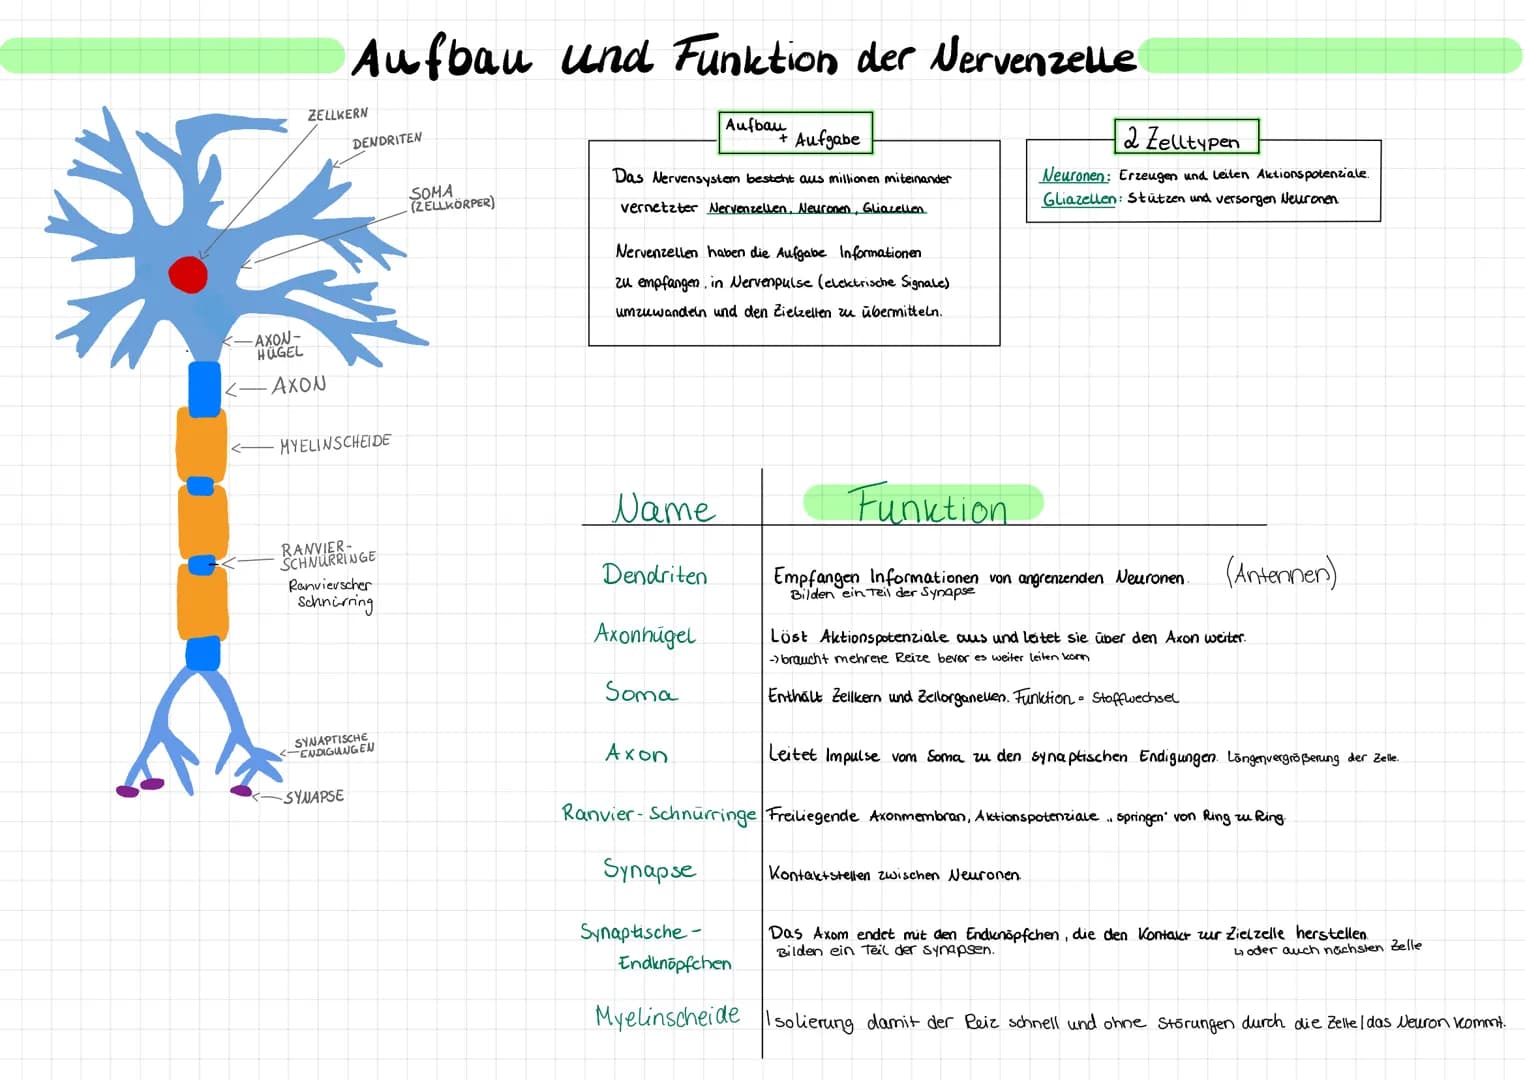 Aufbau und Funktion der Nervenzelle
ZELLKERN
DENDRITEN
SOMA
(ZELLKÖRPER)
AXON-
HÜGEL
AXON
MYELINSCHEIDE
RANVIER-
SCHNÜRRINGE
Ranvierscher
Schnürring
SYNAPTISCHE
ENDIGUNGEN
SYNAPSE
Aufbau
+ Aufgabe
Das Nervensystem besteht aus millionen miteinander
vernetzter Nervenzellen, Neuronen, Gliazellen
Nervenzellen haben die Aufgabe Informationen
zu empfangen, in Nervenpulse (elektrische Signale)
umzuwandeln und den Zielzellen zu übermitteln.
2 Zelltypen
Neuronen: Erzeugen und Leiten Aktionspotenziale.
Gliazellen: Stützen und versorgen Neuronen
Name Funktion
Dendriten Empfangen Informationen von angrenzenden Neuronen. (Antennen)
Bilden ein Teil der Synapse
Axonhügel Löst Aktionspotenziale aus und leitet sie über den Axon weiter.
-> braucht mehrere Reize bevor es weiter leiten kann
Soma Enthält Zellkern und Zellorganellen. Funktion = Stoffwechsel
Axon Leitet Impulse vom Soma zu den synaptischen Endigungen. Längenvergrößerung der Zelle.
Ranvier-Schnürringe Freiliegende Axonmembran, Aktionspotenziale „springen“ von Ring zu Ring.
Synapse Kontaktstellen zwischen Neuronen.
Synaptische- Das Axom endet mit den Endknöpfchen, die den Kontakt zur Zielzelle herstellen.
Bilden ein Teil der Synapsen. ↳ oder auch nächsten Zelle
Endknöpfchen
Myelinscheide Isolierung damit der Reiz schnell und ohne Störungen durch die Zelle/das Neuron kommt.